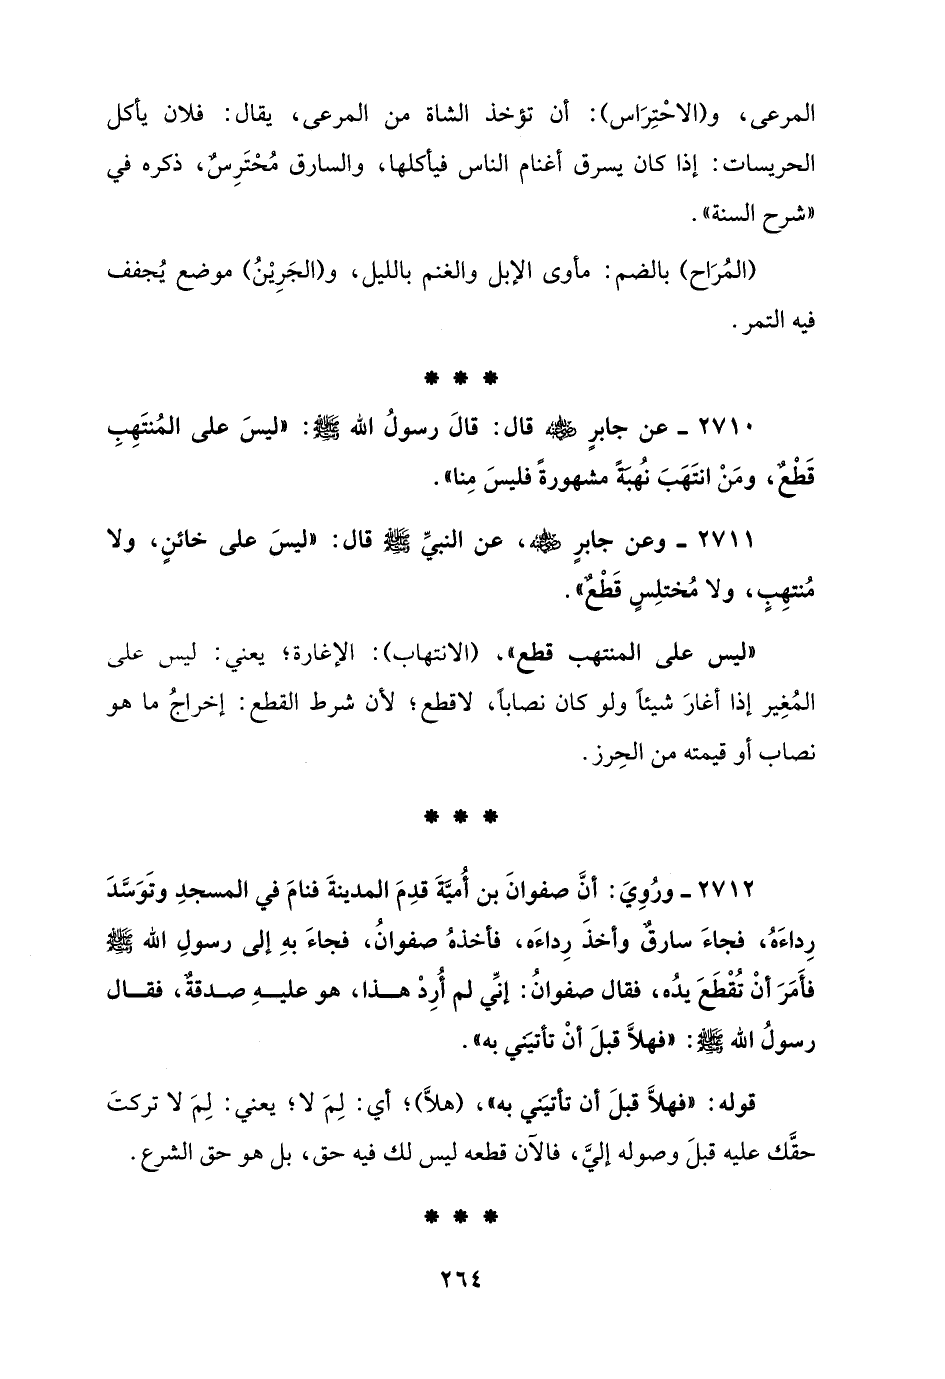 المرعى، و(الاحْتِرَاس): أن تؤخذ الشاة من المرعى، يقال: فلان يأكل
الحريسات: إذا كان يسرق أغنام الناس فيأكلها، والسارق مُحْتَرِسٌ، ذكره في
«شرح السنة».
(المُرَاح) بالضم: مأوى الإبل والغنم بالليل، و(الجَرِيْنُ) موضع يُجفف
فيه التمر.
* * *
٢٧١٠ ـ عن جابرٍ رضي الله عنه قال: قالَ رسولُ الله ﷺ: «ليسَ على المُنتَهِبِ
قَطْعٌ، ومَنْ انتَهَبَ نُهبَةً مشهورةً فليسَ مِنا».
٢٧١١ ـ وعن جابرٍ رضي الله عنه، عن النبيِّ ﷺ قال: «ليسَ على خائنٍ، ولا
مُنتهِبٍ، ولا مُختلِسٍ قَطْعٌ».
«ليس على المنتهب قطع»، (الانتهاب): الإغارة؛ يعني: ليس على
المُغِير إذا أغارَ شيئاً ولو كان نصاباً، لاقطع؛ لأن شرط القطع: إخراجُ ما هو
نصاب أو قيمته من الحِرز.
* * *
٢٧١٢ ـ ورُوِيَ: أنَّ صفوانَ بن أُميَّةَ قدِمَ المدينةَ فنامَ في المسجدِ وتَوَسَّدَ
رِداءَهُ، فجاءَ سارقٌ وأخذَ رِداءَه، فأخذهُ صفوانُ، فجاءَ بهِ إلى رسولِ الله ﷺ
فأَمَرَ أنْ تُقْطَعَ يدُه، فقال صفوانُ: إنِّي لم أُرِدْ هـذا، هو عليـهِ صـدقةٌ، فقـال
رسولُ الله ﷺ: «فهلاَّ قبلَ أنْ تأتيَني به».
قوله: «فهلاَّ قبلَ أن تأتيَني به»، (هلاَّ)؛ أي: لِمَ لا؛ يعني: لِمَ لا تركتَ
حقَّك عليه قبلَ وصوله إليَّ، فالآن قطعه ليس لك فيه حق، بل هو حق الشرع.
* * *
٢٦٤